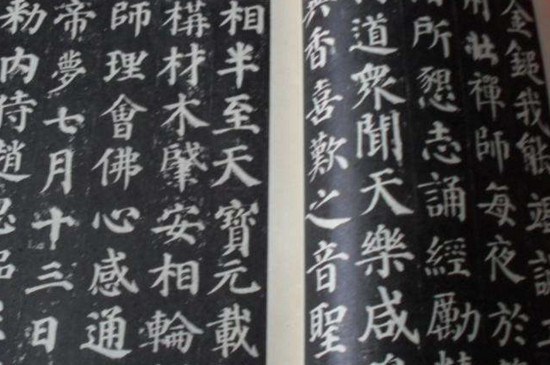 金鎚我能竭誠工
用壯禪師每夜於
所懇志誦經勵精
道衆聞天樂咸
異香喜歎之音聖
相半至天寶元載
構材木肇安相輪
師理會佛心感通
帝夢七月十三日
勑内侍趙思侃